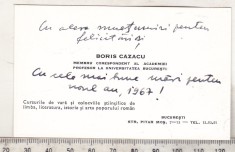 Cu alese mulțumiri pentru
felicitări și
BORIS CAZACU
MEMBRU CORESPONDENT AL ACADEMIEI
PROFESOR LA UNIVERSITATEA BUCUREȘTI
Cu cele mai bune urări pentru
noul an, 1967!
Cursurile de vară și colocviile științifice de
limba, literatura, istoria și arta poporului român
BUCUREȘTI
STR. PITAR MOȘ, 7-13 — TEL.